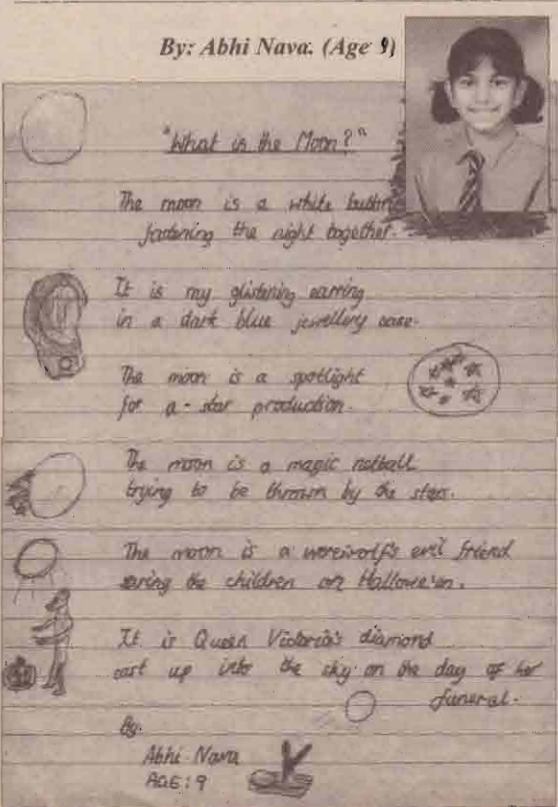 By: Abhi Nava. (Age 9)
"What is the Moon?"
The moon is a white button
fastening the night together.
It is my glistening earring
in a dark blue jewellery case.
The moon is a spotlight
for a-star production.
The moon is a magic netball
trying to be thrown by the stars.
The moon is a werewolf's evil friend
the children on Hallowe'en.
It is Queen Victoria's diamond
cast up into the sky on the day of her
funeral.
By.
Abhi Nava
AGE: 9